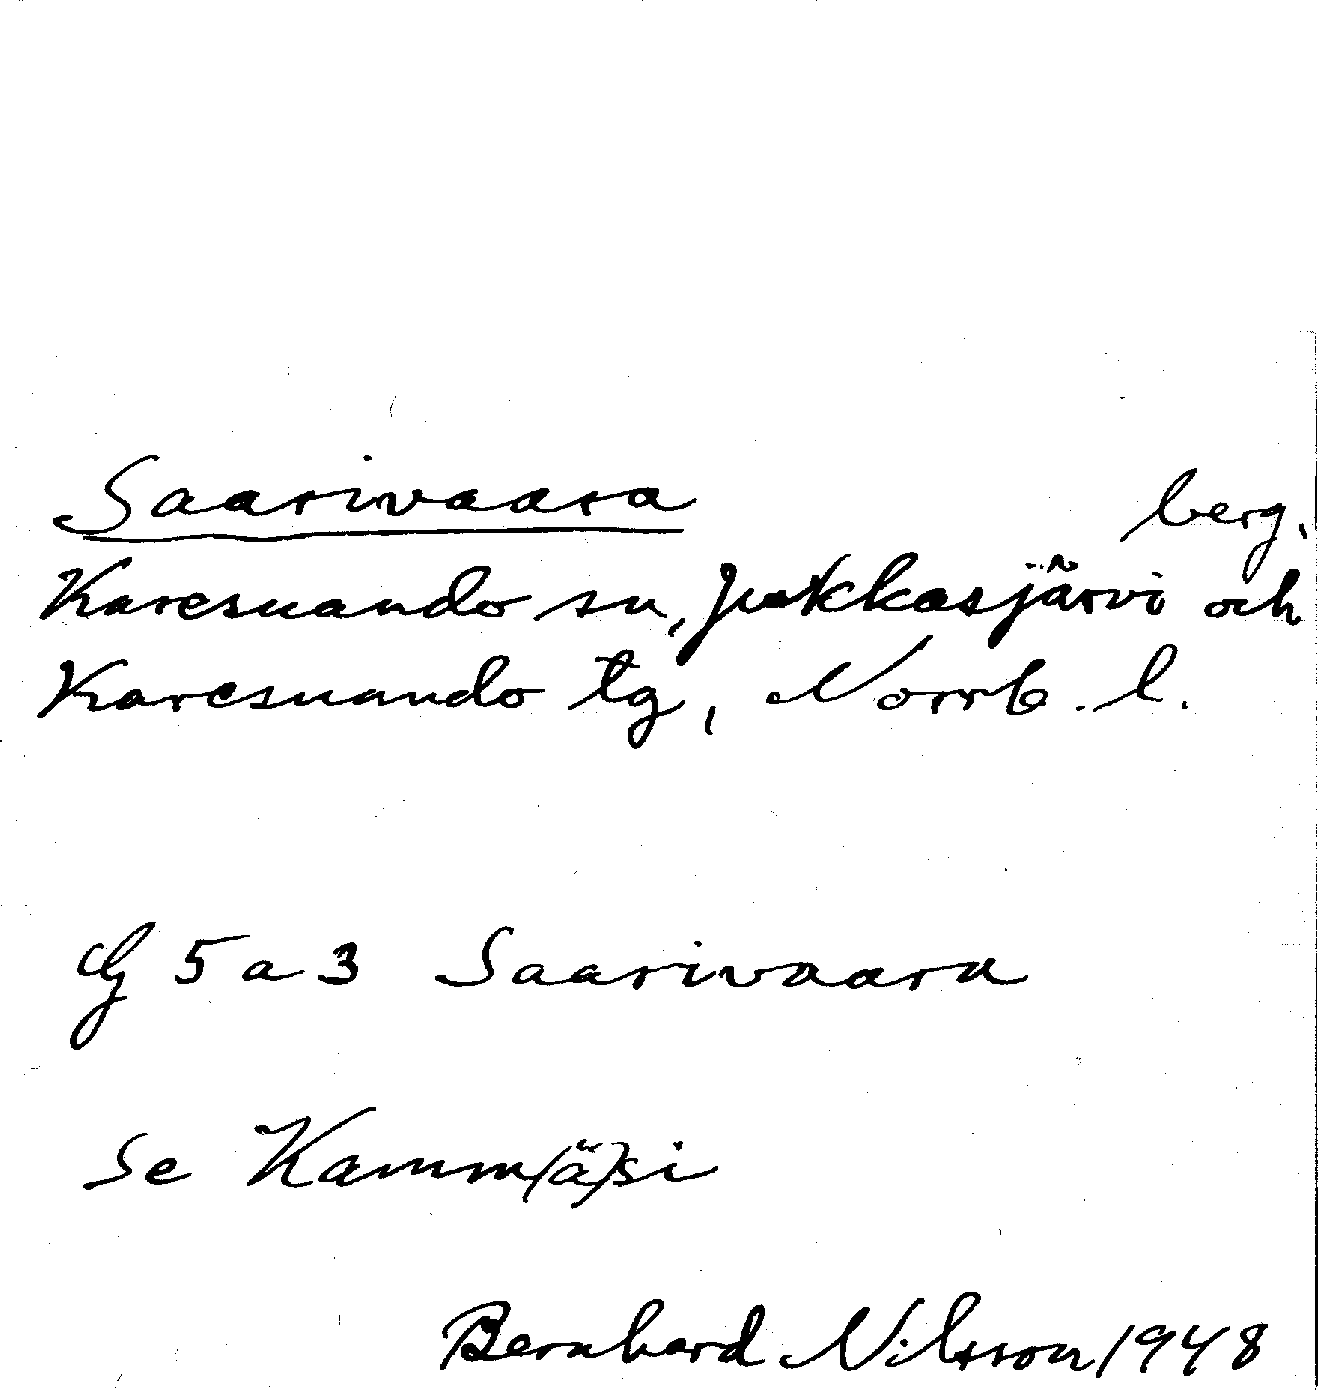 Saarivaara berg,
Karesuando sn, Jukkasjärvi och
Karesuando tg, Norrb. l.
5 a 3 Saarivaara
Se Kamm(ä)si
Bernhard Nilsson 1948